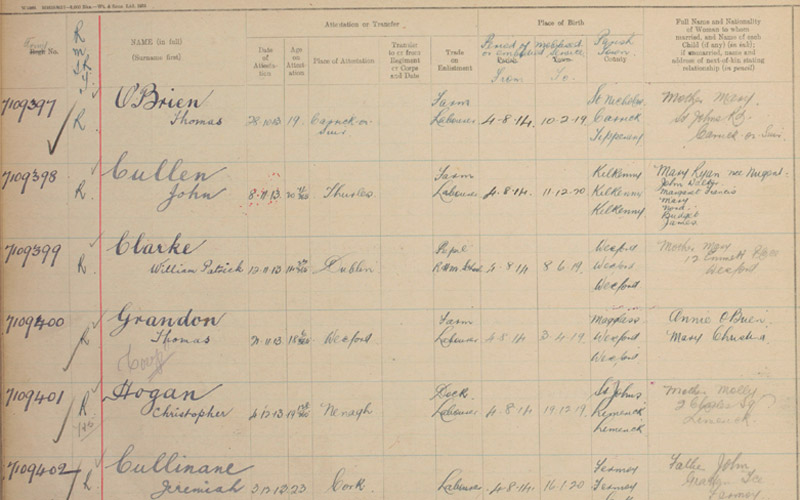 Attestation or Transfer
Place of Birth
Army No.
NAME (in full)
(Surname first)
Date of Attestation
Age on Attestation
Place of Attestation
Transfer to or from Regiment or Corps and Date
Trade on Enlistment
Period of Mobilized or embodied Service
From
To
Parish
Town
County
Full Name and Nationality of Woman to whom married, and Name of each Child (if any) (as ink); if unmarried, name and address of next-of-kin stating relationship (in pencil)
7109397 R. O'Brien Farm St Nicholas Mother Mary
Thomas 28-10-13 19 Carrick-on- Labourer 4-8-14 10-2-19 Carrick St Johns Rd
Suir Tipperary Carrick-on-Suir
7109398 R. Cullen Farm Kilkenny Mary Ryan nee Nugent
John 8-11-13 20 Thurles Labourer 4-8-14 11-12-20 Kilkenny John
Kilkenny Margaret Francis
Mary
Bridget
James
7109399 R. Clarke Wexford Mother Mary
William Patrick 12-11-13 Dublin 4-8-14 8-6-19 Wexford 12 Emmett
Wexford Wexford
7109400 R Grandon Farm Annie O'Brien
Thomas 18 Wexford Labourer 4-8-14 3-4-19 Wexford Mary Christina
Wexford
7109401 R Hogan Dock St Johns Mother Molly
Christopher 4-12-13 19 Nenagh Labourer 4-8-14 19-12-19 Limerick
Limerick Limerick
7109402 R. Cullinane Fermoy Father John
Jeremiah 3-12-13 23 Cork Labourer 4-8-14 16-1-20 Fermoy Grattan Tce
Fermoy